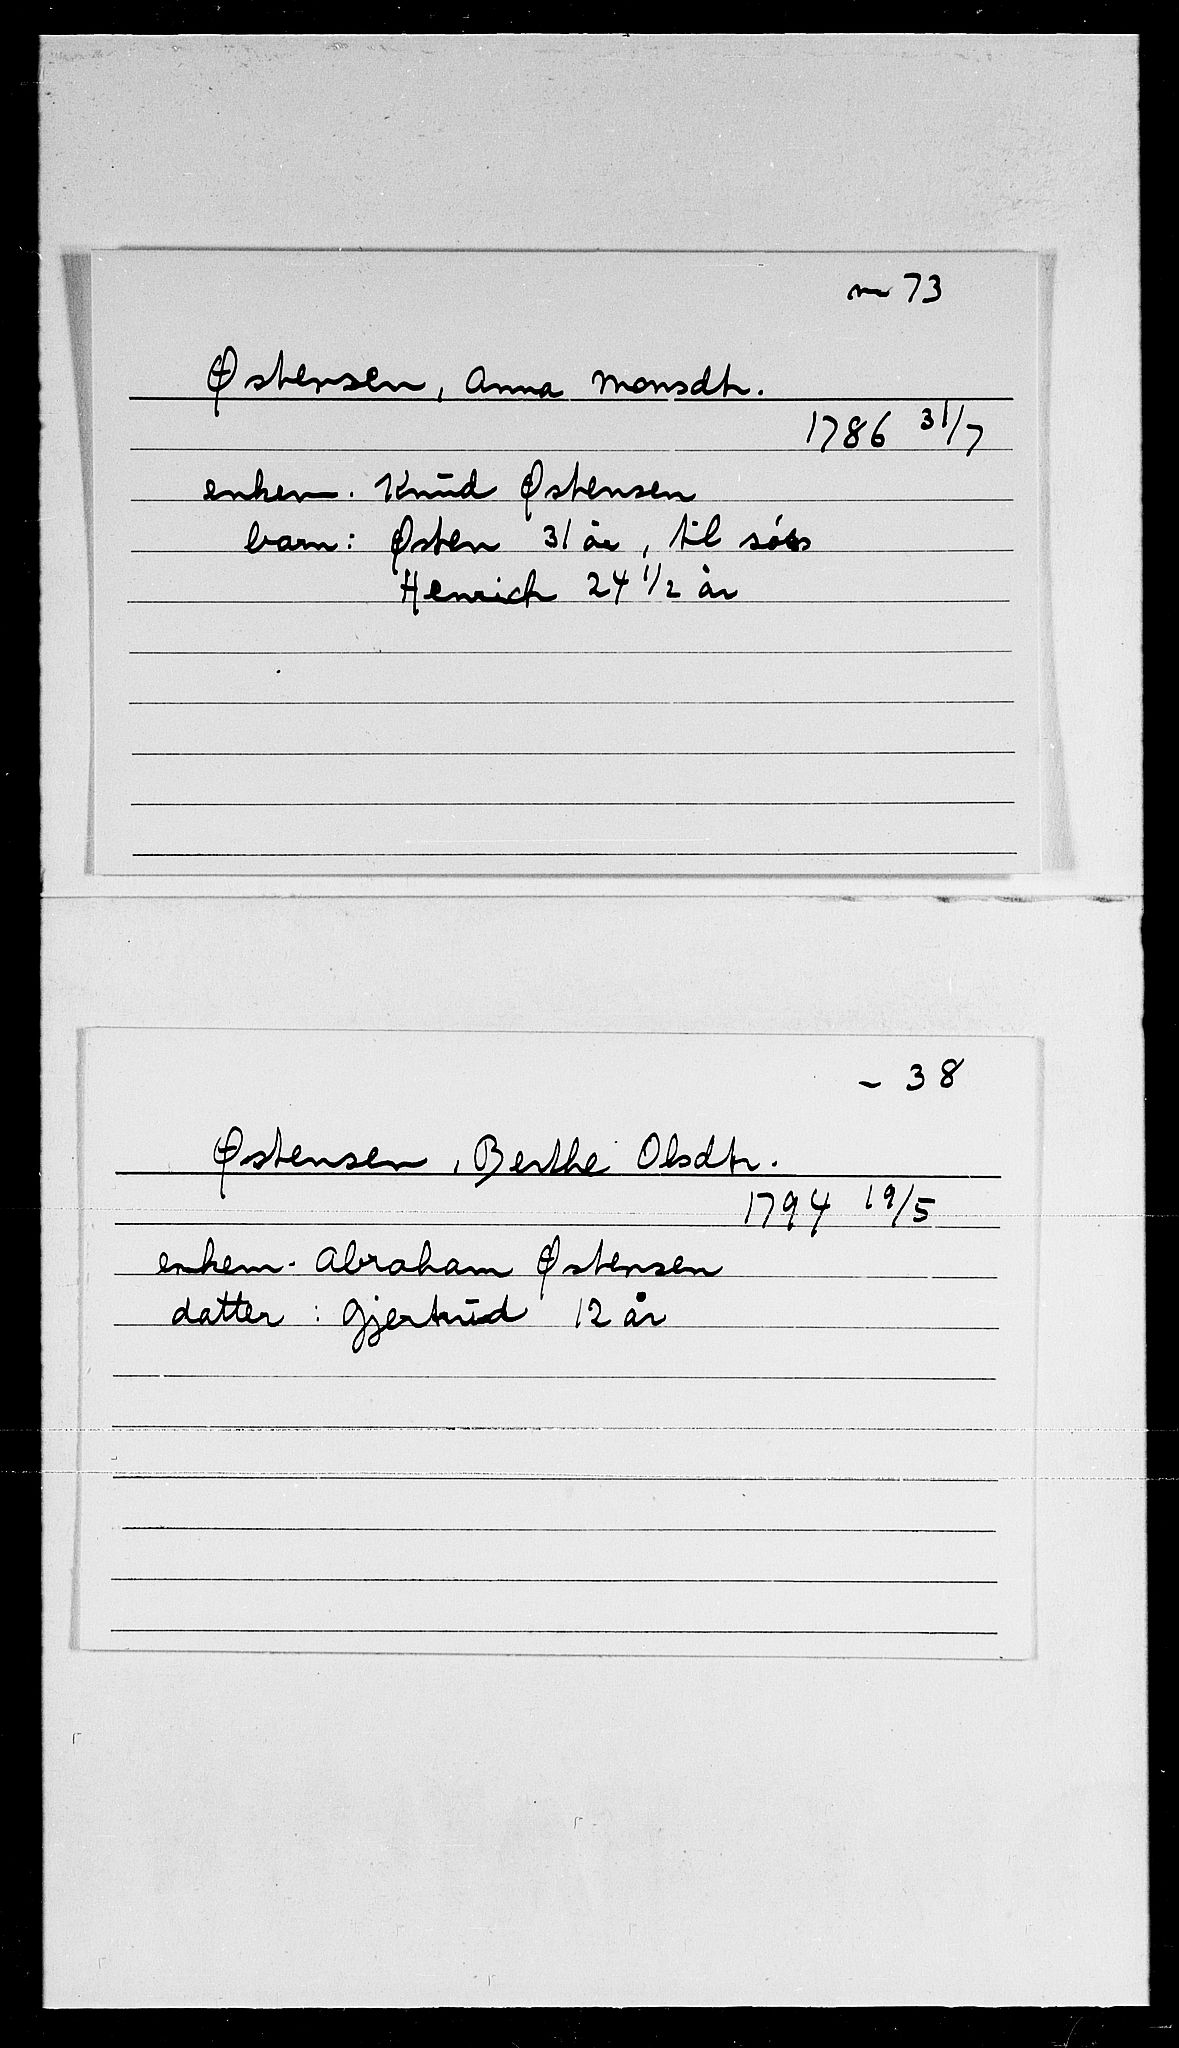 73
Østensen, Anna Monsdtr.
1786 31/7
enkem. Knud Østensen
barn: Østen 31 år, til søes
Henrich 24 1/2 år
- 38
Østensen, Berthe Olsdtr.
1794 19/5
enkem. Abraham Østensen
datter: Gjertrud 12 år